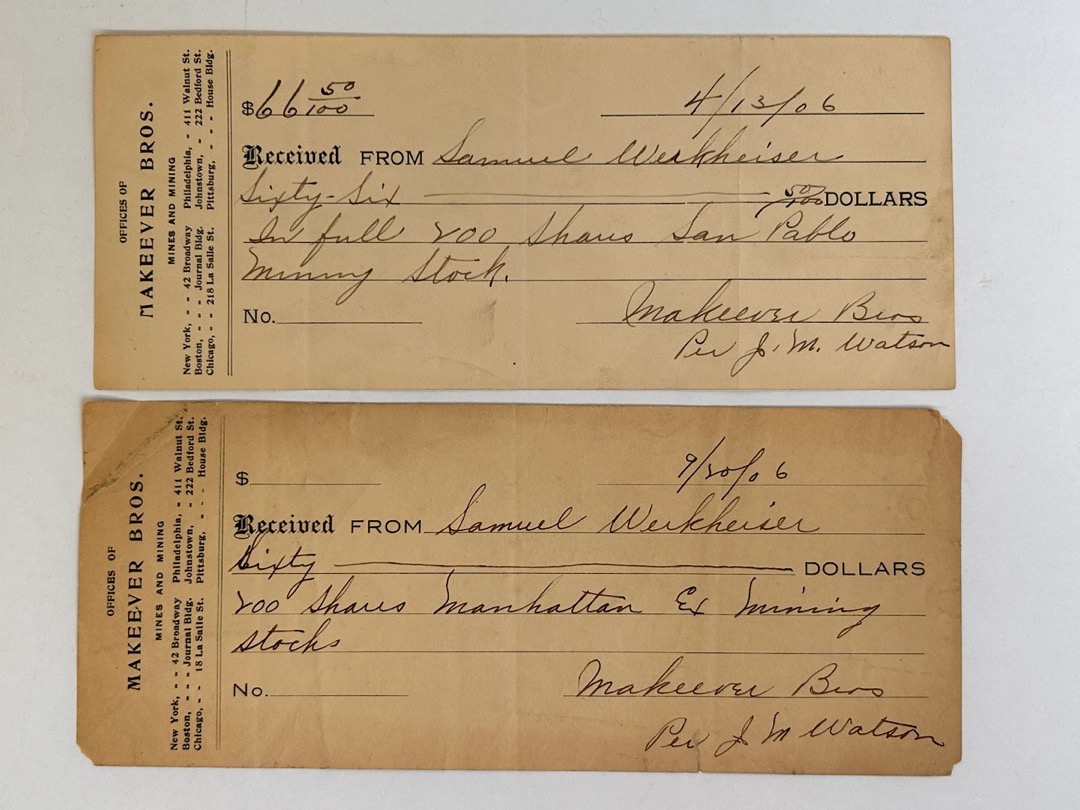 OFFICES OF
MAKEEVER BROS.
MINES AND MINING
New York, - - 42 Broadway Philadelphia, - 411 Walnut St.
Boston, - - - Journal Bldg. Johnstown, - 222 Bedford St.
Chicago, - - 218 La Salle St. Pittsburg, - - House Bldg.
$66 50/100 4/13/06
Received FROM Samuel Werkheiser
Sixty-Six 50/100 DOLLARS
In full 200 Shares San Pablo
Mining Stock.
No. Makeever Bros
Per J. M. Watson
OFFICES OF
MAKEEVER BROS.
MINES AND MINING
New York, - - 42 Broadway Philadelphia, - 411 Walnut St.
Boston, - - - Journal Bldg. Johnstown, - 222 Bedford St.
Chicago, - - 18 La Salle St. Pittsburg, - - - House Bldg.
$ 9/20/06
Received FROM Samuel Werkheiser
Sixty DOLLARS
200 Shares Manhattan Ex Mining
Stocks
No. Makeever Bros
Per J M Watson